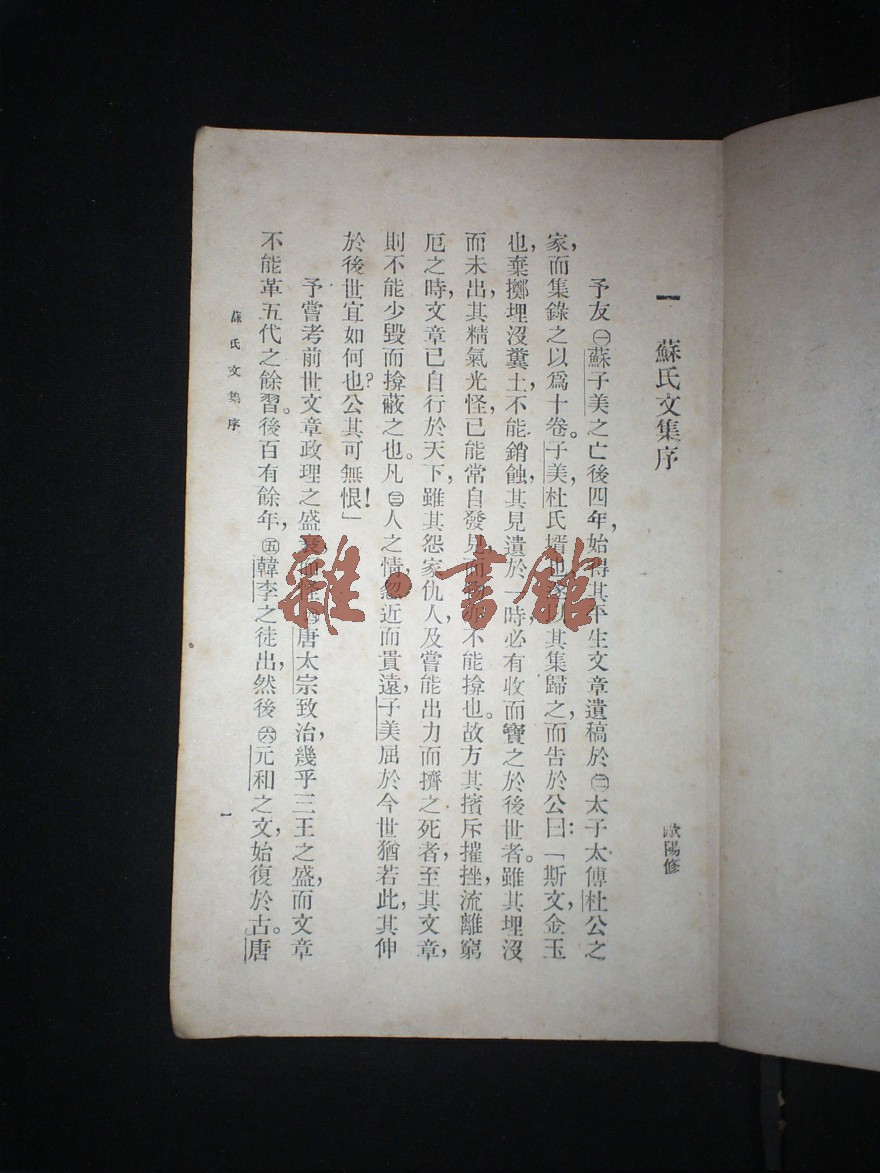 一 蘇氏文集序
歐陽修
予友㊀蘇子美之亡後四年,始得其平生文章遺稿於㊁太子太傅杜公之
家,而集錄之以爲十卷。子美,杜氏壻也,遂以其集歸之,而告於公曰:「斯文,金玉
也,棄擲埋沒糞土,不能銷蝕,其見遺於一時,必有收而寶之於後世者。雖其埋沒
而未出,其精氣光怪,已能常自發見,而物不能揜也。故方其擯斥摧挫,流離窮
厄之時,文章已自行於天下,雖其怨家仇人,及嘗能出力而擠之死者,至其文章,
則不能少毀而揜蔽之也。凡㊂人之情,忽近而貴遠,子美屈於今世猶若此,其伸
於後世宜如何也?公其可無恨!」
予嘗考前世文章政理之盛衰而怪㊃唐太宗致治,幾乎三王之盛,而文章
不能革五代之餘習。後百有餘年,㊄韓李之徒出,然後㊅元和之文,始復於古。唐
蘇氏文集序
一
雜·書館